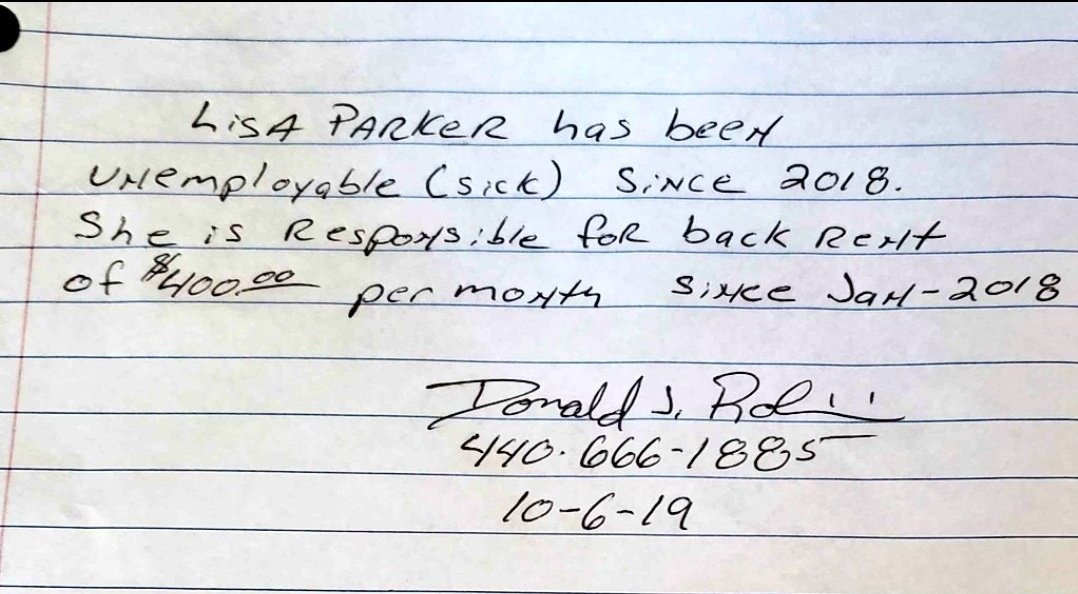 LiSA PARKeR has been
unemployable (sick) Since 2018.
She is Responsible foR back Rent
of $400.00 per month since Jan-2018
Donald J.
440-666-1885
10-6-19